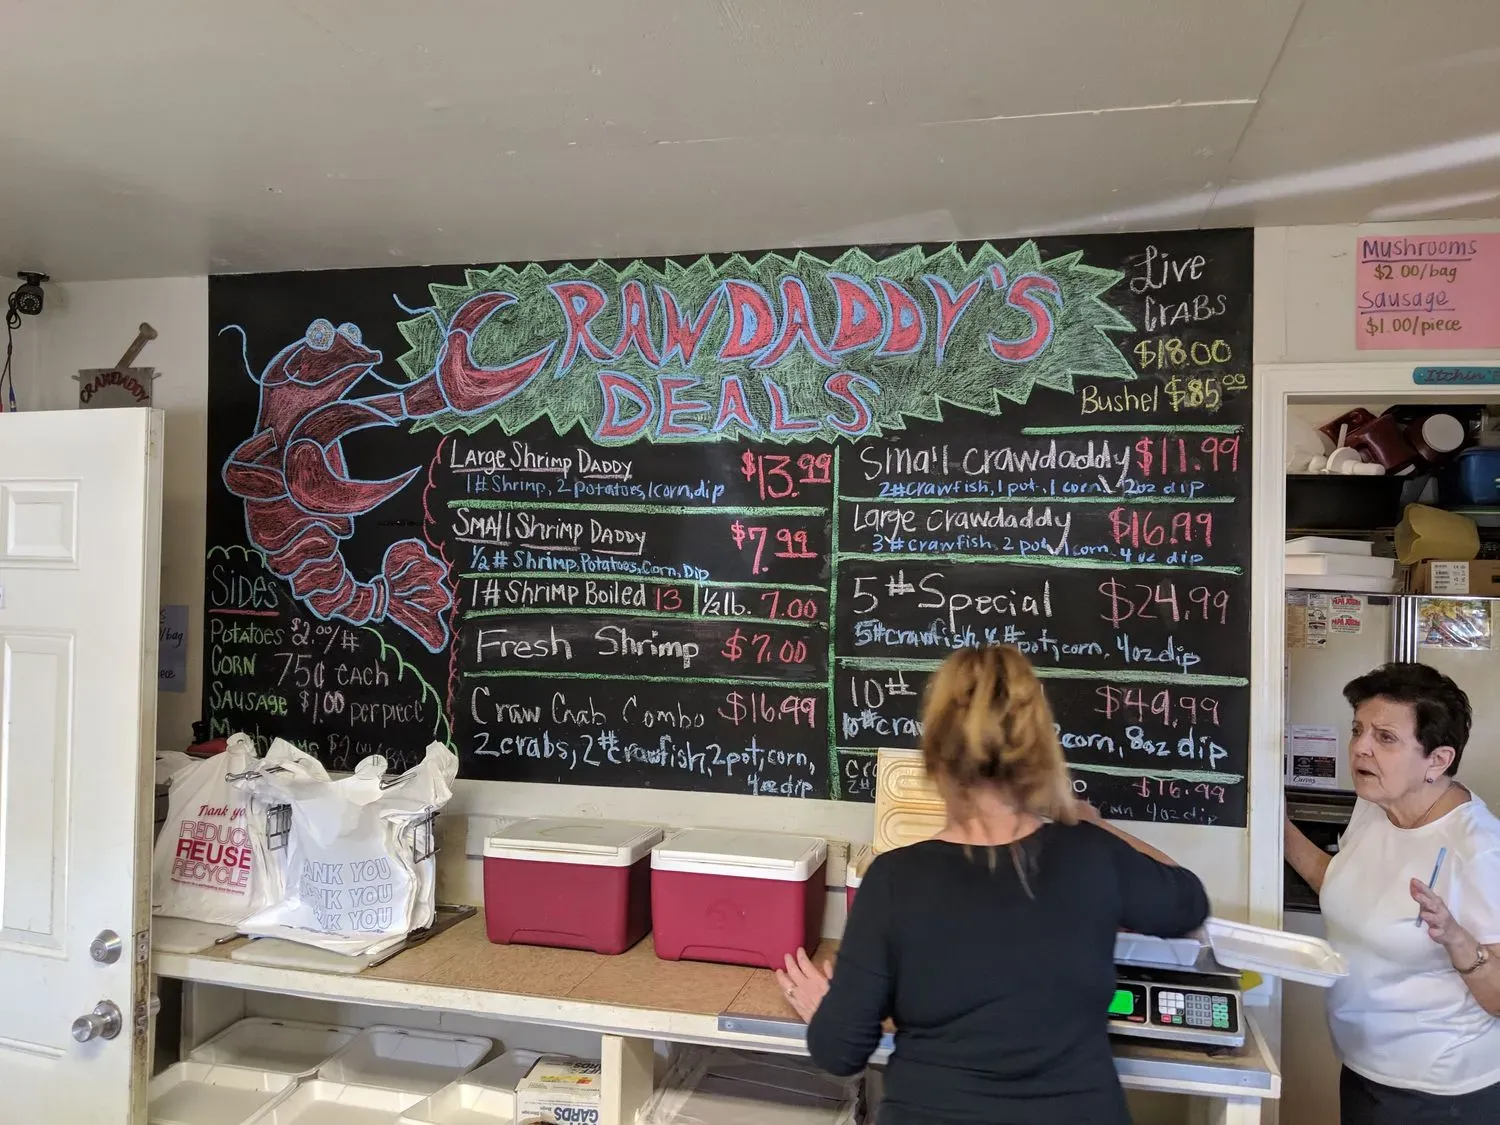 CRAWDADDY'S
DEALS
Live
CRABS
$18.00
Bushel $85.00
Large Shrimp DADDY $13.99
1# Shrimp, 2 potatoes, 1 corn, dip
SMAll Shrimp DADDY $7.99
1/2 # Shrimp, Potatoes, Corn, Dip
1# Shrimp Boiled 13 1/2 lb. 7.00
Fresh Shrimp $7.00
Craw Crab Combo $16.99
2 crabs, 2# crawfish, 2 pot, corn,
4oz dip
Small Crawdaddy $11.99
2# crawfish, 1 pot, 1 corn, 2oz dip
Large Crawdaddy $16.99
3# crawfish, 2 pot, 1 corn, 4 oz dip
5# Special $24.99
5# crawfish, pot, corn, 4oz dip
10# $49.99
10# craw corn, 8oz dip
$16.99
4oz dip
Sides
Potatoes $2.00/#
Corn 75¢ each
Sausage $1.00 per piece
Mushrooms $2.00/BAG
Mushrooms
$2.00/bag
Sausage
$1.00/piece
CRAWDADDY
/bag
ece
Thank yo
REDUCE
REUSE
RECYCLE
ANK YOU
NK YOU
NK YOU